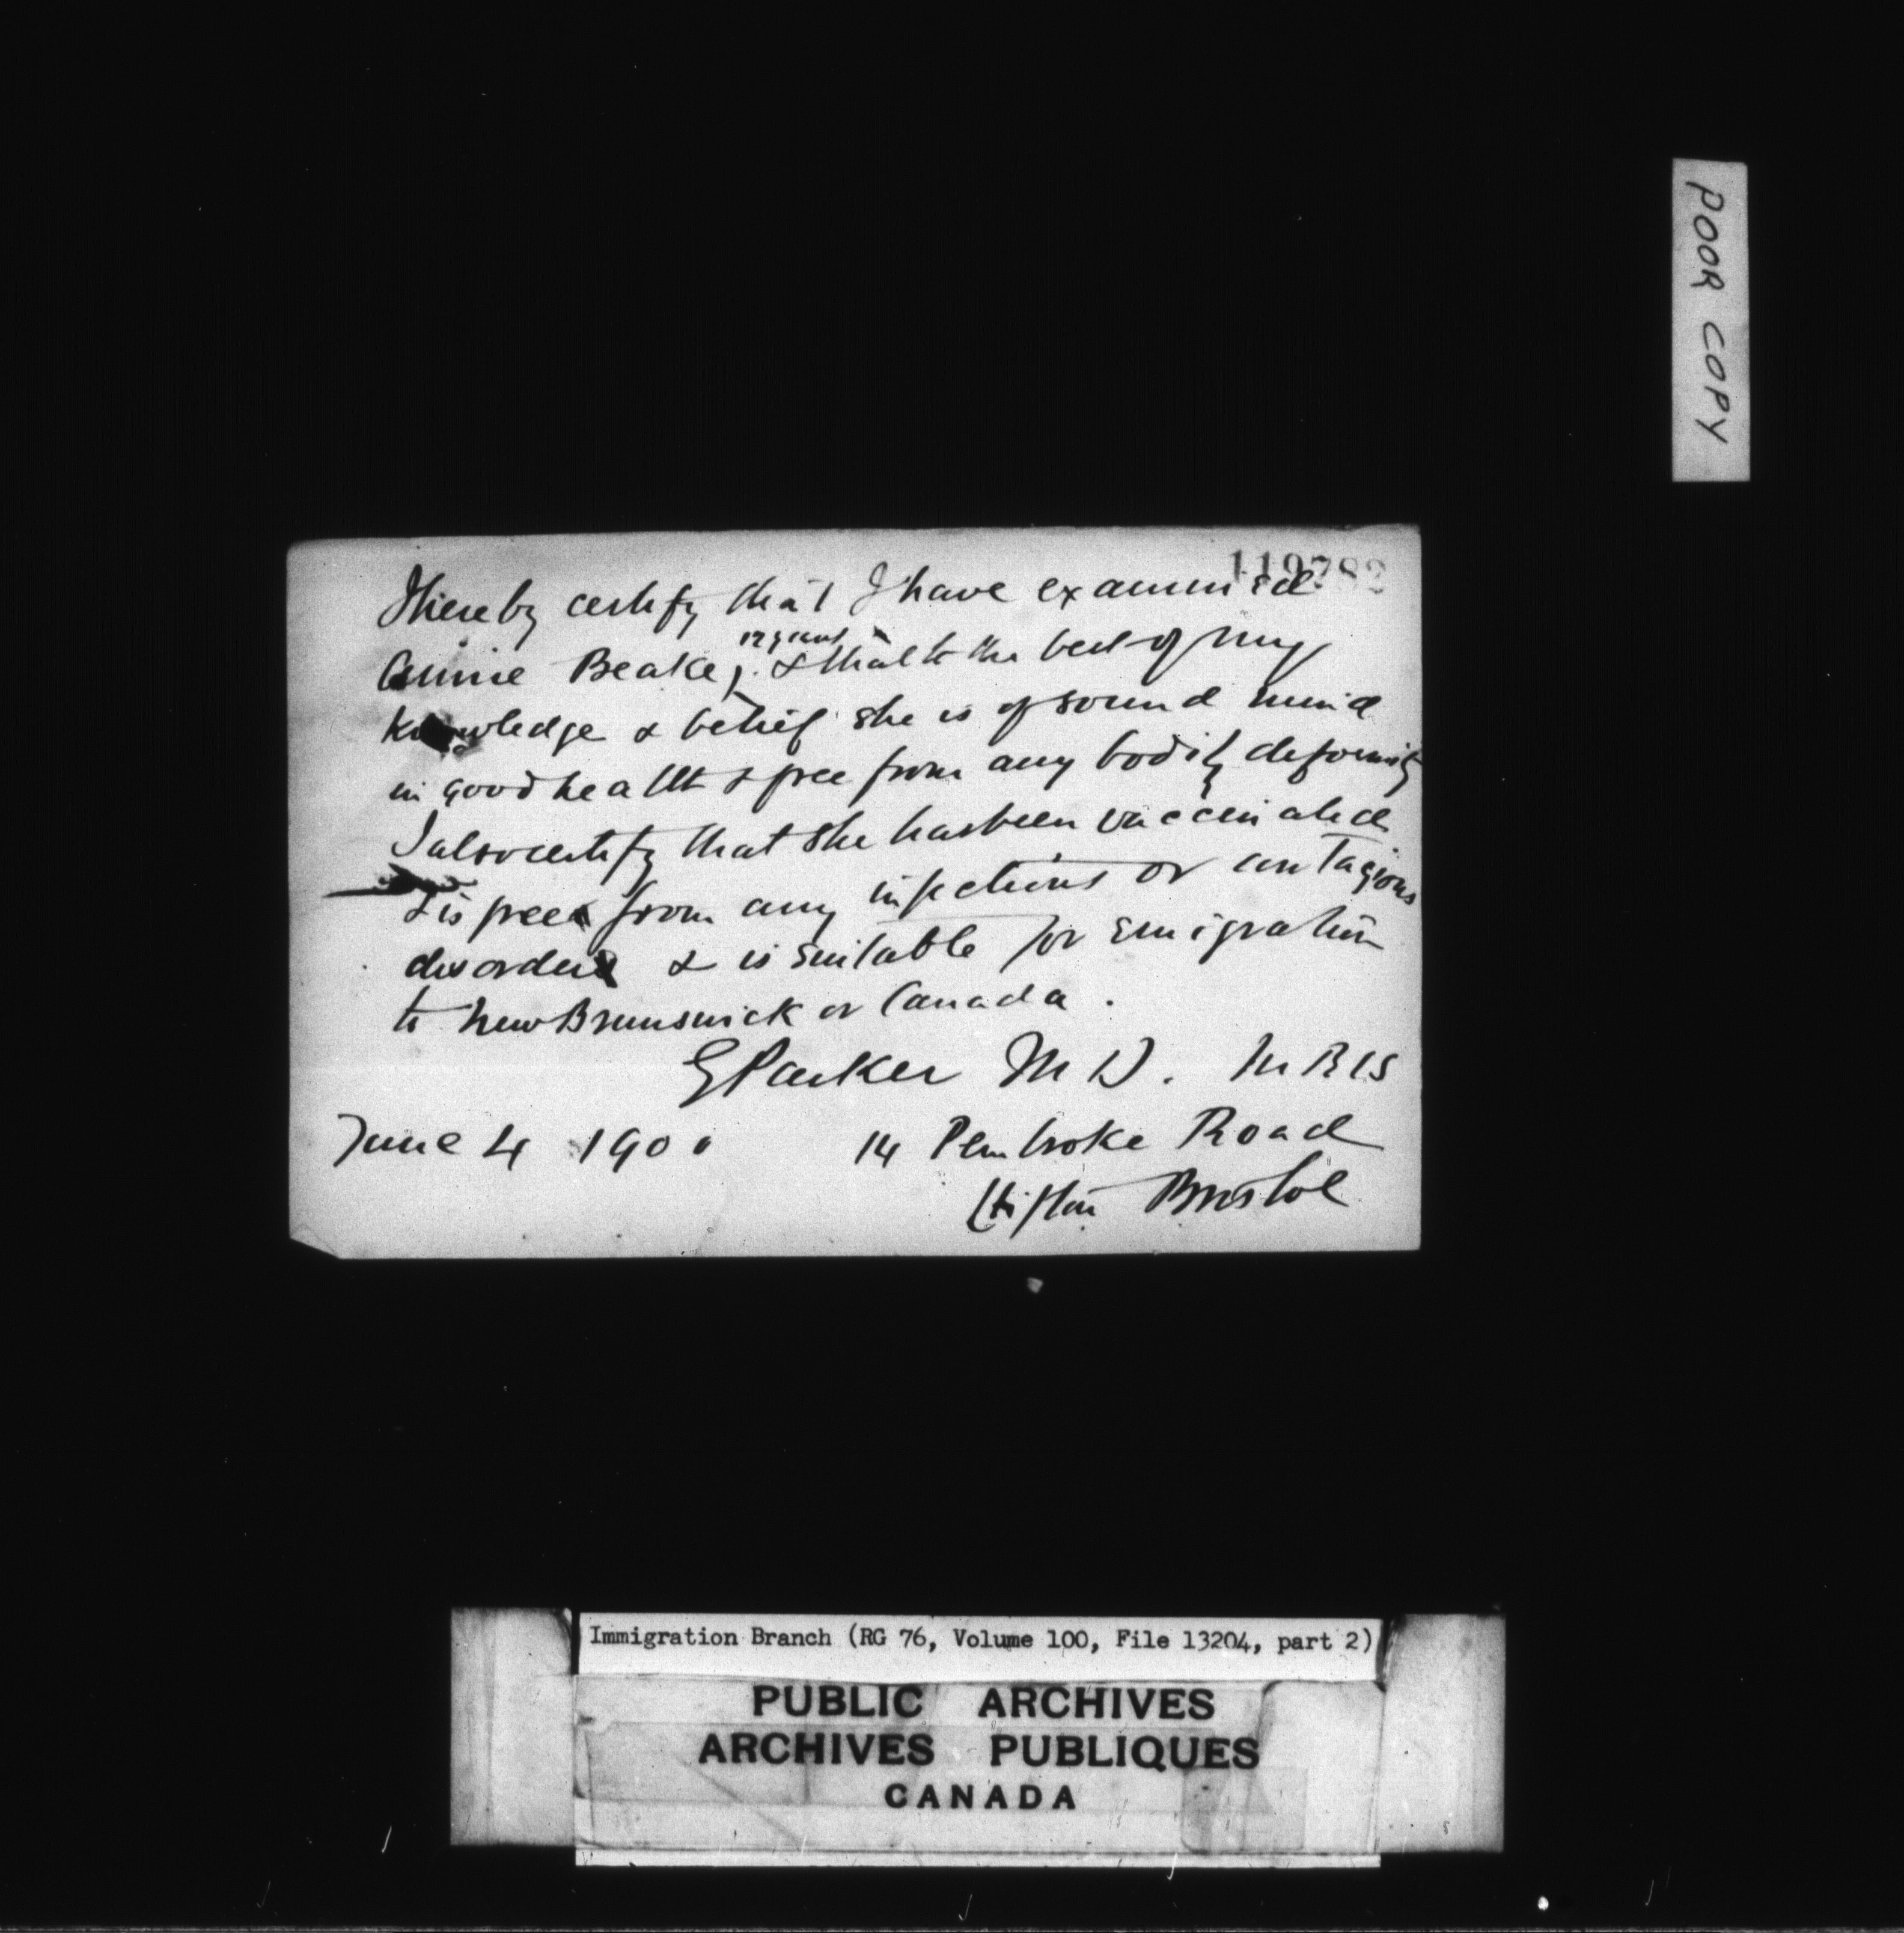 POOR COPY
119782
I hereby certify that I have examined
Annie Beake, & that to the best of my
knowledge & belief she is of sound mind
in good health & free from any bodily deformity
I also certify that she has been vaccinated
& is free from any infectious or contagious
disorder & is suitable for emigration
to New Brunswick or Canada.
G Parker M D.
June 4 1900 14 Pembroke Road
Clifton Bristol
Immigration Branch (RG 76, Volume 100, File 13204, part 2)
PUBLIC ARCHIVES
ARCHIVES PUBLIQUES
CANADA